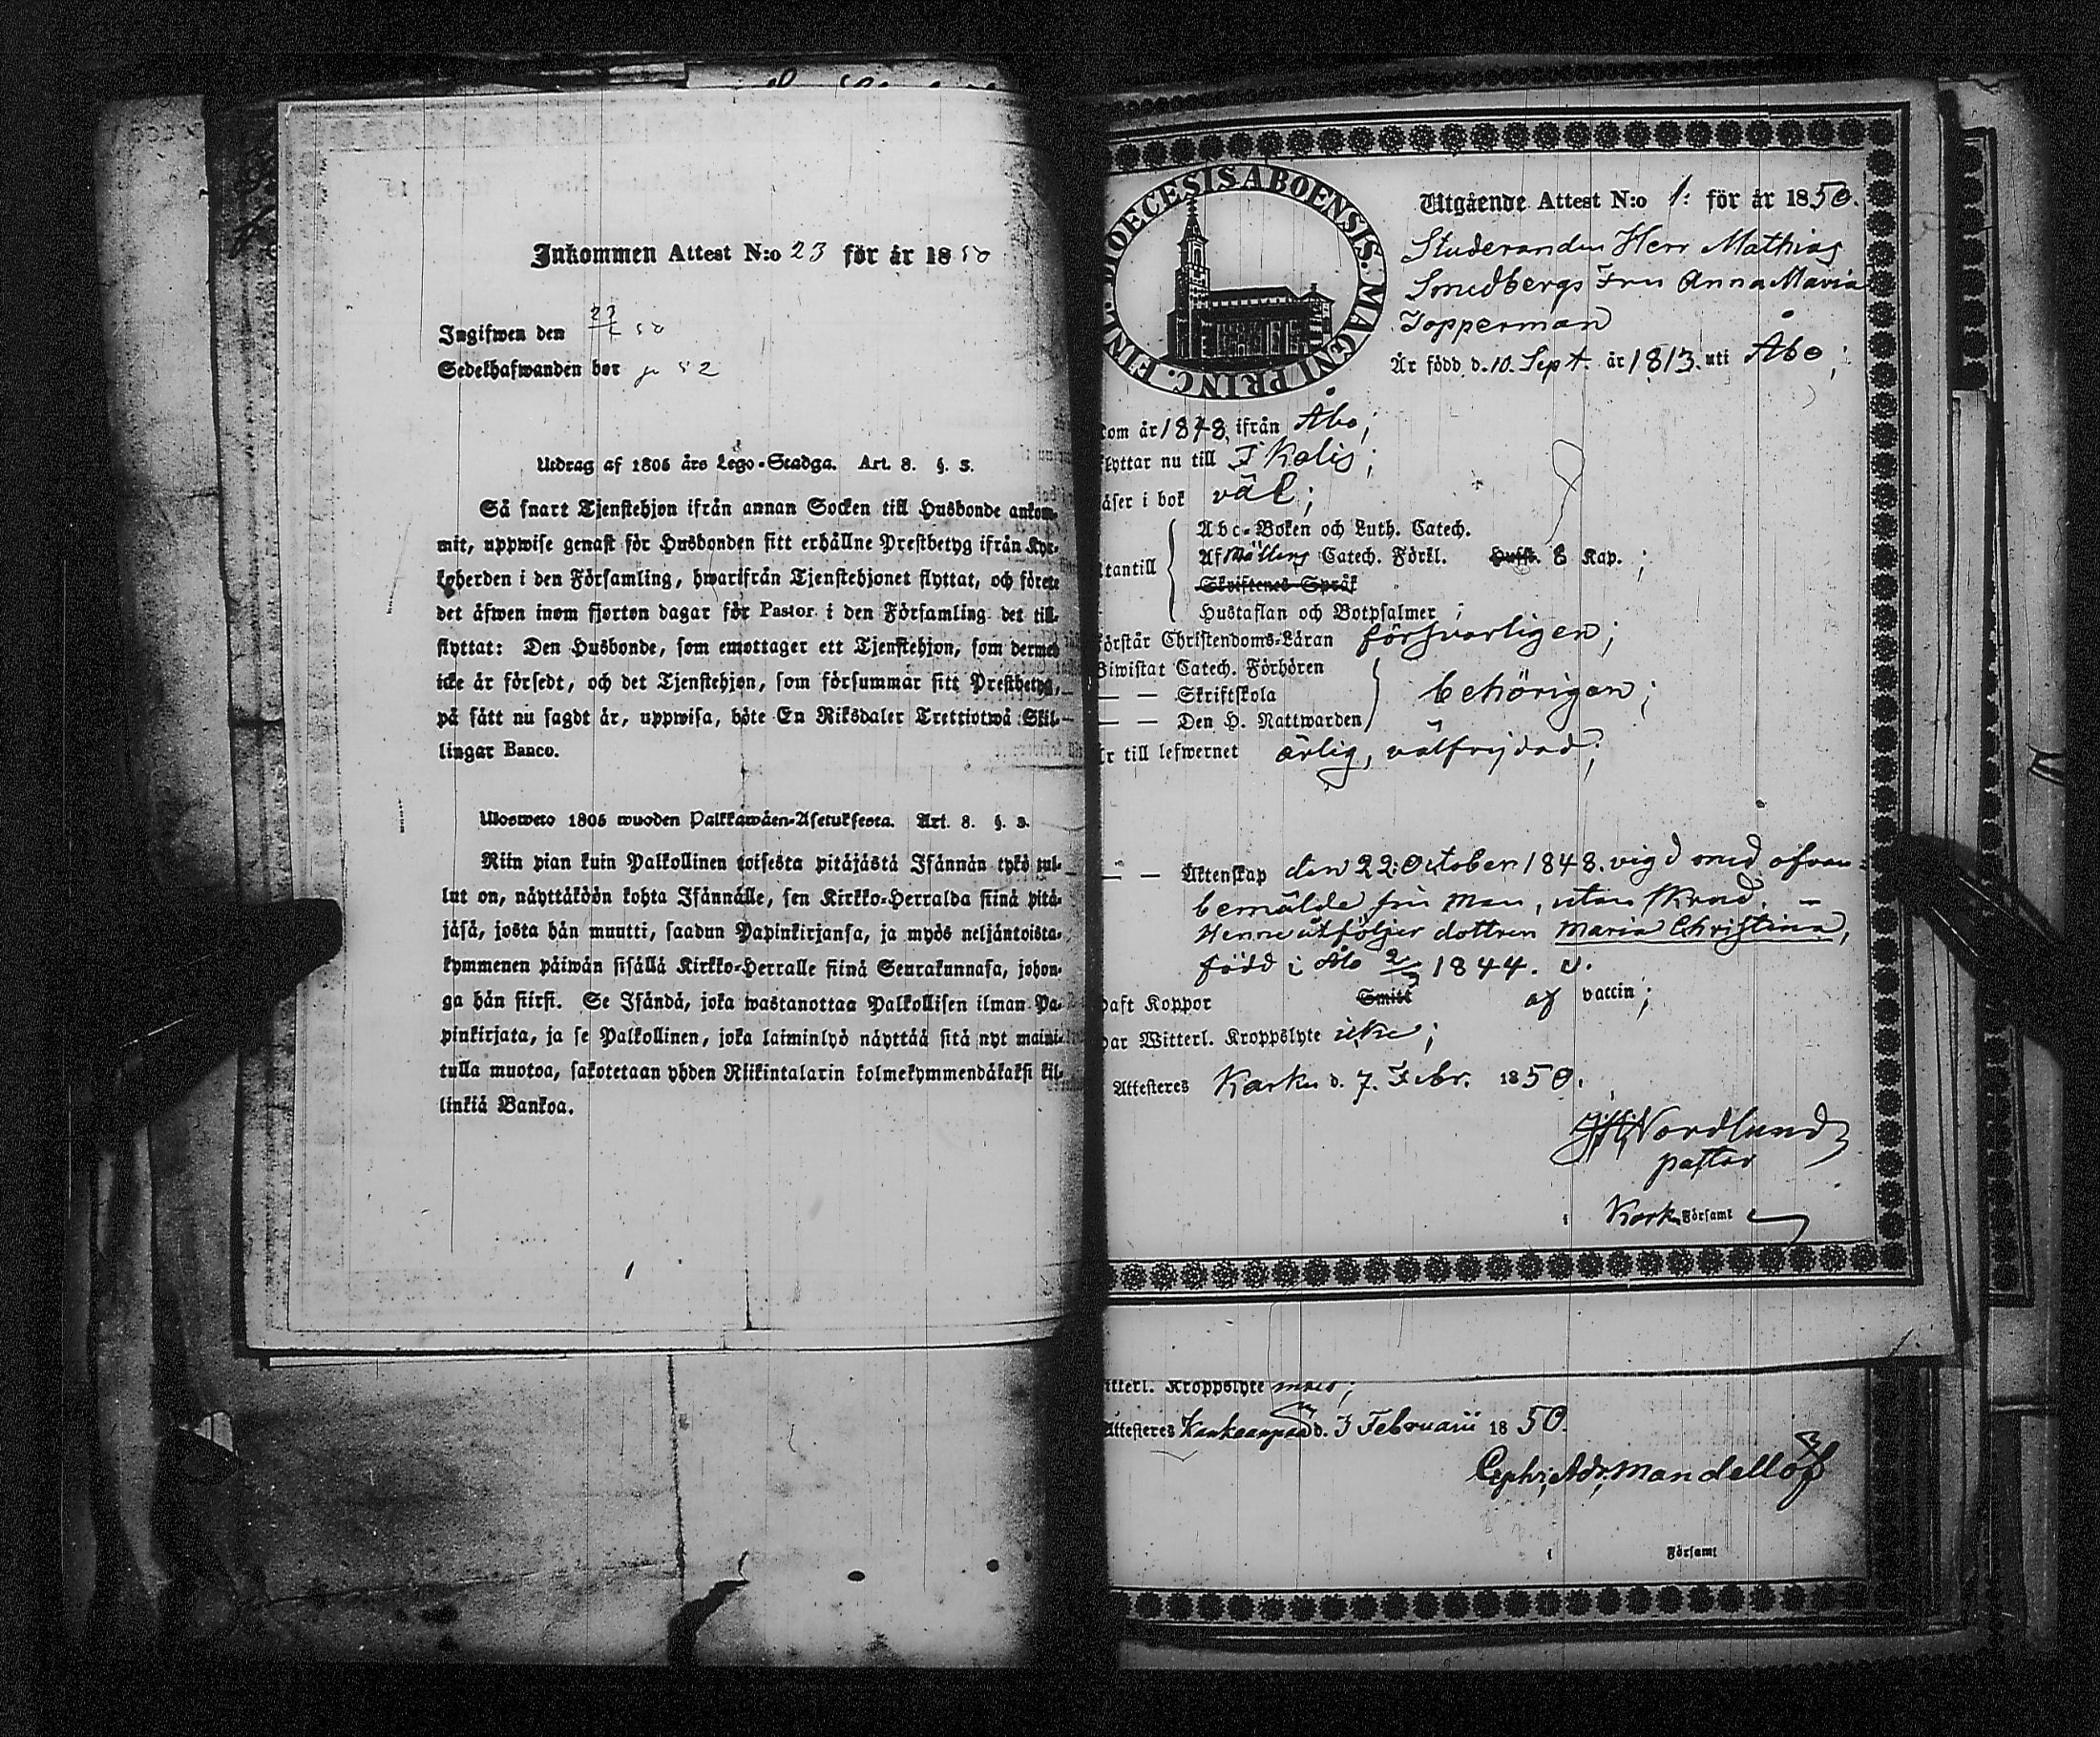 Inkommen Attest N:o 23 för år 1850
Ingifwen den
Sedelhafwanden bor
Utdrag af 1805 års Lego-Stadga. Art. 8. §. 3.
Så snart Tjenstehjon ifrån annan Socken till Husbonde ankom-
mit, uppwise genast för Husbonden sitt erhållne Prestbetyg ifrån Kyr-
koherden i den Församling, hwarifrån Tjenstehjonet flyttat, och förete
det äfwen inom fjorton dagar för Pastor i den Församling det till-
flyttat: Den Husbonde, som emottager ett Tjenstehjon, som dermed
icke är försedt, och det Tjenstehjon, som försummar sitt Prestbetyg,
på sätt nu sagdt är, uppwisa, böte En Riksdaler Trettiotwå Skil-
lingar Banco.
Uloswето 1805 wuoden Palkkawäen-Asetuksesta. Art. 8. §. 3.
Niin pian kuin Palkollinen toisesta pitäjästä Isännän tykö tul-
lut on, näyttäköön kohta Isännälle, sen Kirkko-Herralda siinä pitä-
jäsä, josta hän muutti, saadun Papinkirjansa, ja myös neljäntoista-
kymmenen päiwän sisällä Kirkko-Herralle siinä Seurakunnasa, johon-
ga hän siirsi. Se Isändä, joka wastanottaa Palkollisen ilman Pa-
pinkirjata, ja se Palkollinen, joka laiminlyö näyttää sitä nyt maini-
tulla muotoa, sakotetaan yhden Riikintalarin kolmekymmendäkaksi kil-
linkiä Bankoa.
FINL. DIOECESIS ABOENSIS. MAGNI PRINC.
Utgående Attest N:o 1: för år 1850.
Studeranden Herr Mathias
Smedbergs Fru Anna Maria
Topperman
Är född d. 10. Sept. år 1813. uti Åbo;
kom år 1848, ifrån Åbo;
flyttar nu till Ikalis;
läser i bok väl;
Abc-Boken och Luth. Catech.
utantill Af Möllers Catech. Förkl. Husst. 8 Kap.;
Skriftenes Språk
Hustaflan och Botpsalmer;
förstår Christendoms-Läran försvarligen;
Biwistat Catech. Förhören
— — Skriftskola behörigen;
— — Den H. Nattwarden
är till lefwernet ärlig, välfrejdad;
— — Äktenskap den 22: October 1848. vigd med ofvan-
bemälde sin man, utan skrud. —
Henne åtföljer dottren Maria Christina,
född i Åbo 2/9 1844. v.
haft Koppor Smitt af vaccin;
har Witterl. Kroppslyte icke;
Attesteres Karku d. 7. Febr. 1850.
Nordlund
pastor
i Karku Församl
itterl. Kroppslyte
Attesteres Kankaanpää d. 3 Februarii 1850.
Mandellöf
i Församl